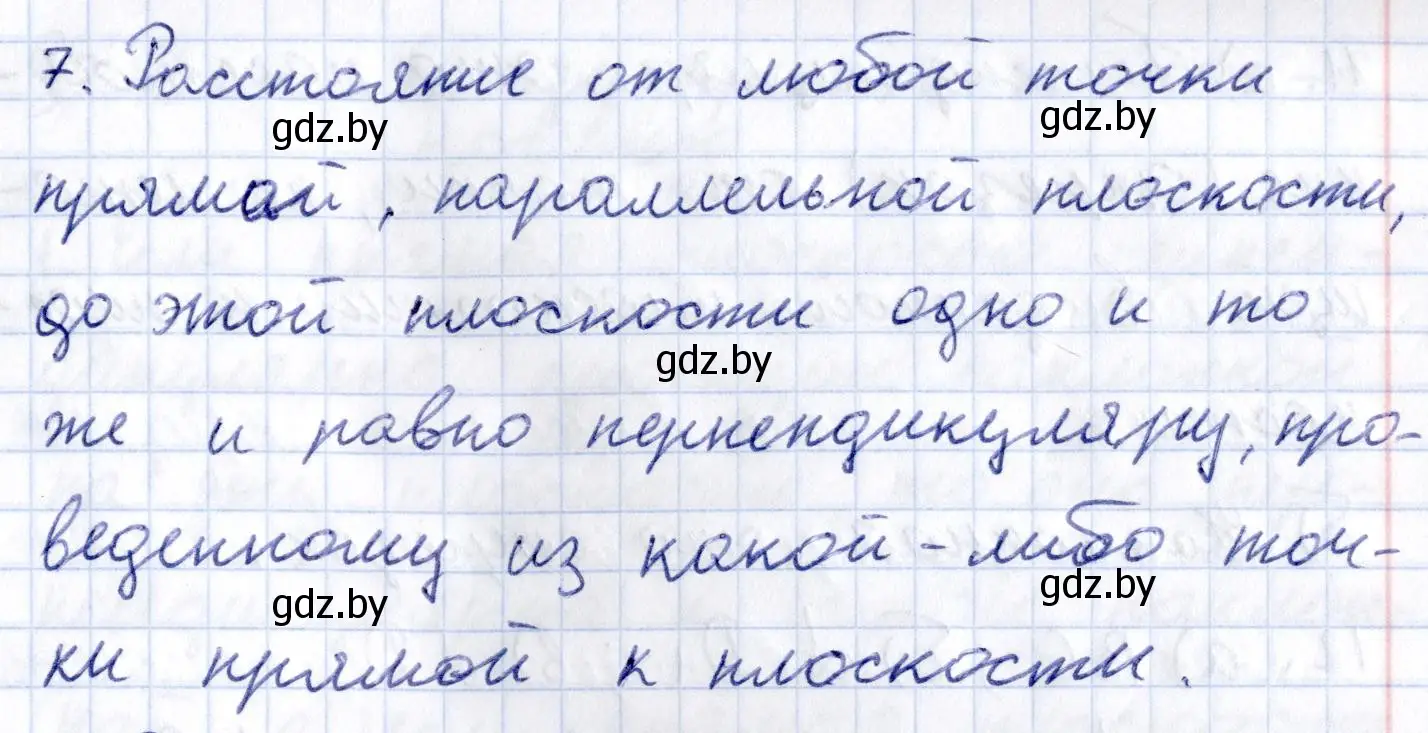 7. Расстояние от любой точки
gdz.by gdz.by
прямой, параллельной плоскости,
до этой плоскости одно и то
gdz.by
же и равно перпендикуляру, про-
веденному из какой-либо точ-
gdz.by gdz.by
ки прямой к плоскости.